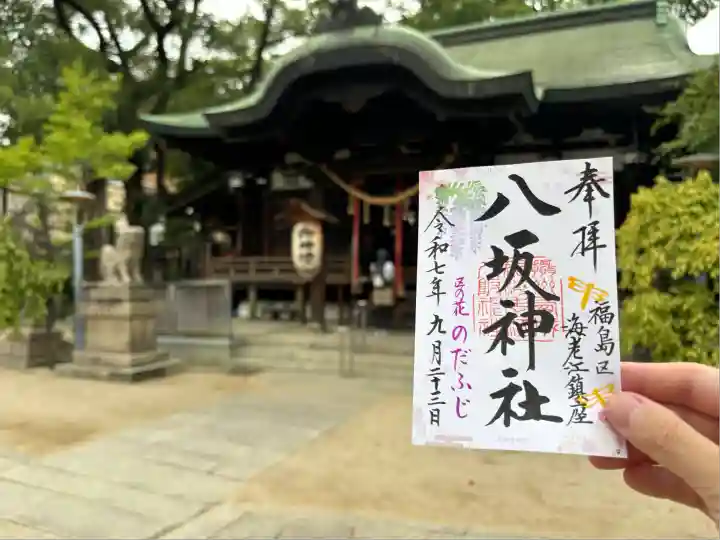 奉拝
福島区
海老江鎮座
八坂神社
区の花 のだふじ
令和七年 九月二十三日